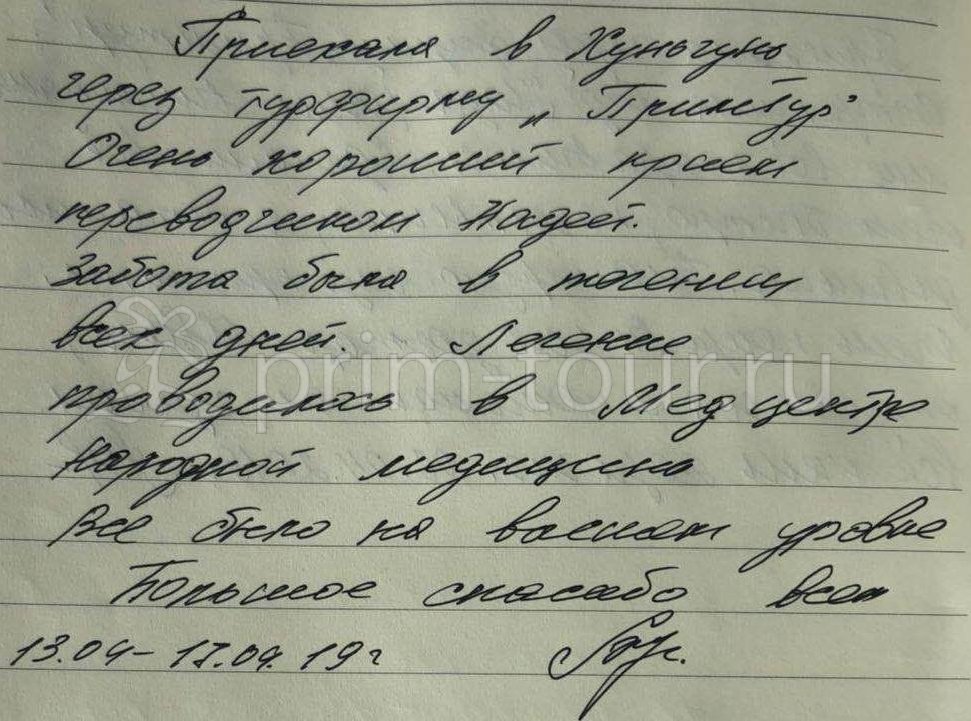 Приехала в Хуньчунь
через турфирму „ Примтур"
Очень хороший прием
переводчиком Надей.
Забота была в течении
всех дней. Лечение
проводилось в Мед центре
Народной медицины
Все было на высшем уровне
Большое спасибо всем
13.04 – 17.04.19 г
prim-tour.ru